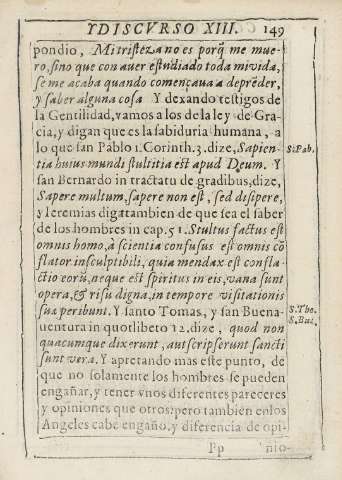 YDISCVRSO XIII. 149
pondio, Mi tristeza no es porq̃ me mue-
ro, sino que con auer estudiado toda mi vida,
se me acaba quando començaua a deprẽder,
y saber alguna cosa Y dexando testigos de
la Gentilidad, vamos a los de la ley de Gra-
cia, y digan que es la sabiduria humana, a
lo que san Pablo 1. Corinth. 3. dize, Sapien-
S. Pab.
tia huius mundi stultitia est apud Deum. Y
san Bernardo in tractatu de gradibus, dize,
Sapere multum, sapere non est, sed desipere,
y Ieremias diga tambien de que sea el saber
de los hombres in cap. 51. Stultus factus est
omnis homo, à scientia confusus est omnis cõ
flator in sculptibili, quia mendax est confla-
ctio eorũ, neque est spiritus in eis, vana sunt
opera, & risu digna, in tempore visitationis
suæ peribunt. Y santo Tomas, y san Buena-
S. Tho.
uentura in quotlibeto 12. dize, quod non
S. Bue.
quacumque dixerunt, aut scripserunt sancti
sunt vera. Y apretando mas este punto, de
que no solamente los hombres se pueden
engañar, y tener vnos diferentes pareceres
y opiniones que otros: pero tambien en los
Angeles cabe engaño, y diferencia de opi-
Pp nio-